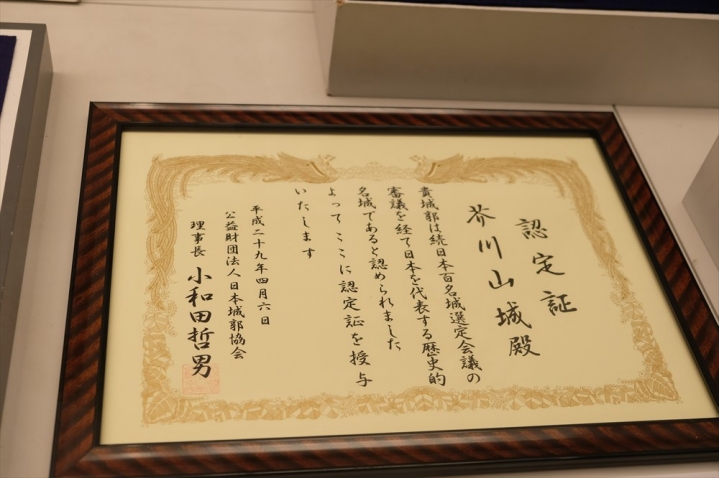 認定証
芥川山城殿
貴城郭は続日本百名城選定会議の
審議を経て日本を代表する歴史的
名城であると認められました
よってここに認定証を授与
いたします
平成二十九年四月六日
公益財団法人日本城郭協会
理事長 小和田哲男